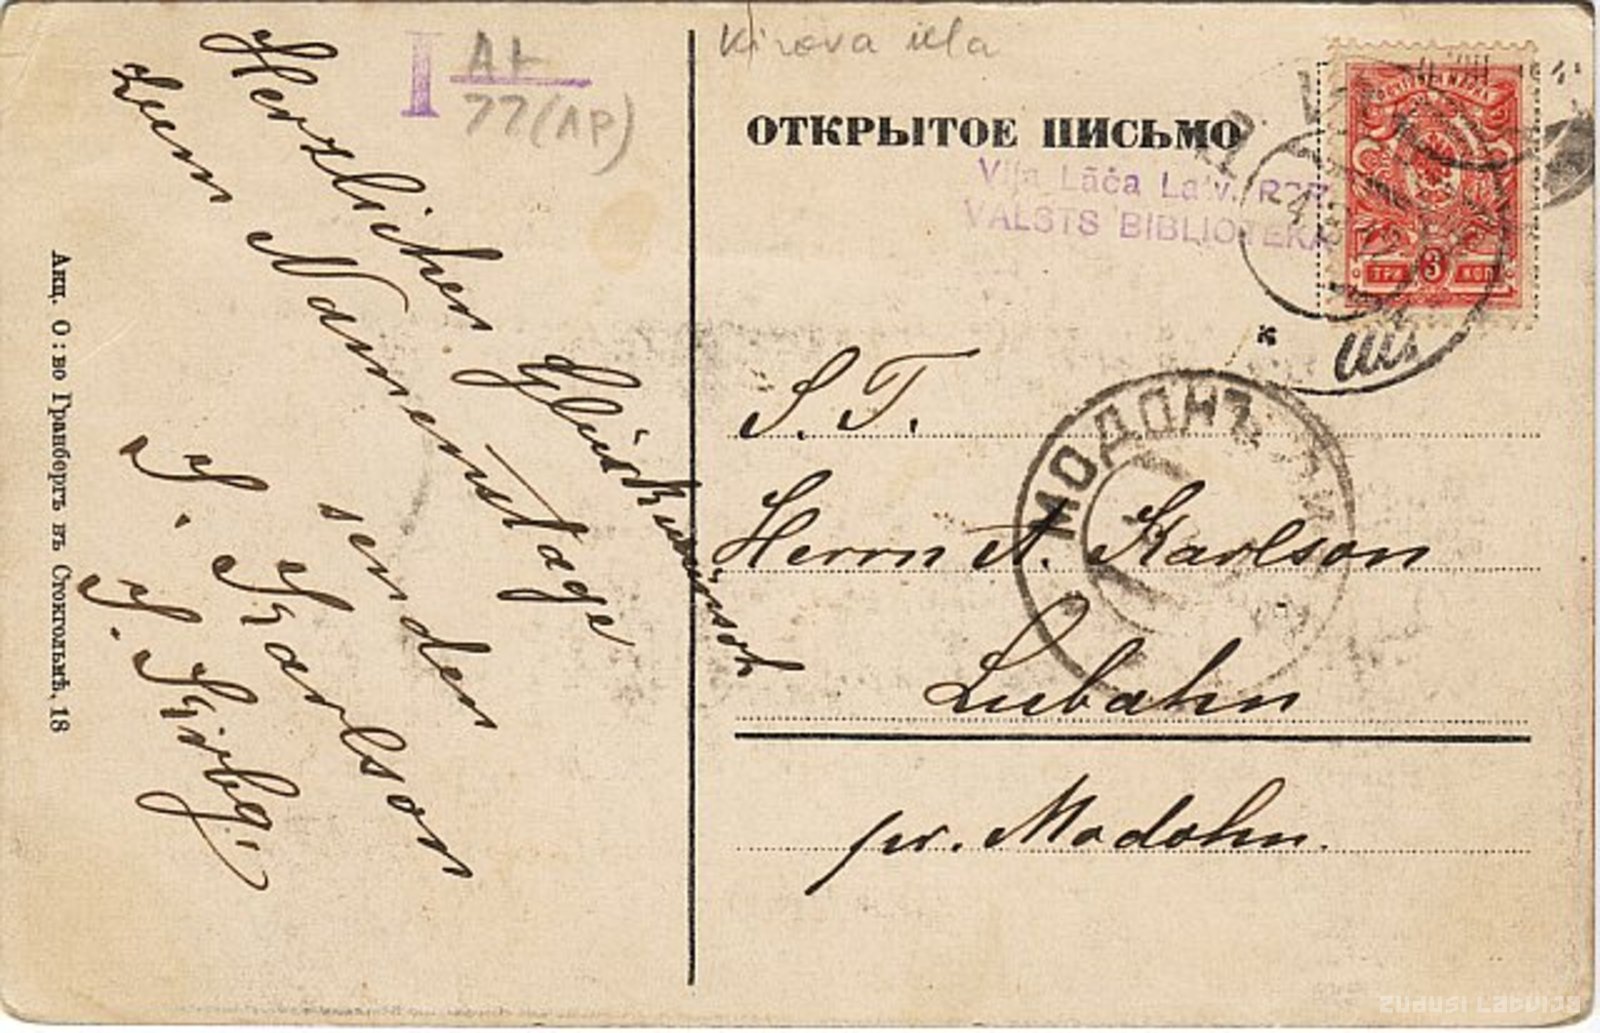 Kirova iela
I AŁ
77 (AP)
ОТКРЫТОЕ ПИСЬМО
Viļa Lāča Latv.
VALSTS BIBLIOTEKA
ТРИ 3 КОП
Herzlichen Glückwunsch
zum Namenstage
senden
J. Karlson
J. Kirbg.
Акц. О: во Гранбергъ въ Стокгольмѣ, 18
S. T.
МОДОНЪ
Herrn A. Karlson
Lubahn
pr. Modohn.
zudusi latvija